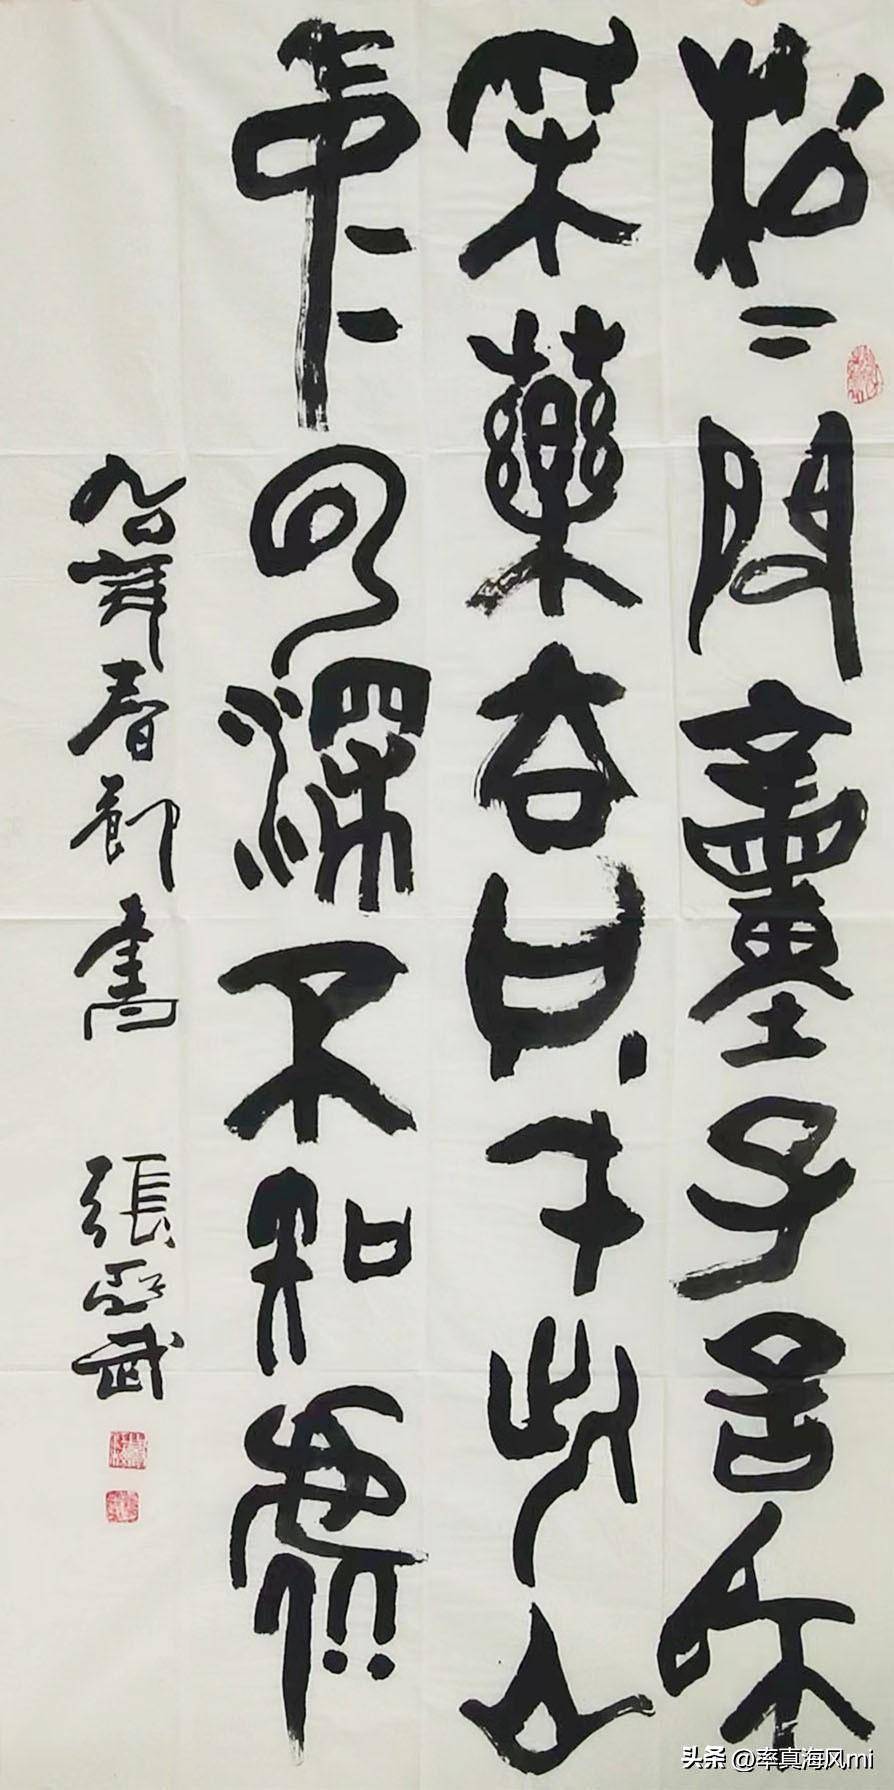 松下問童子言師
采藥去只在此山
中云深不知處
九年春節書 張亞武
頭条 @率真海风mi